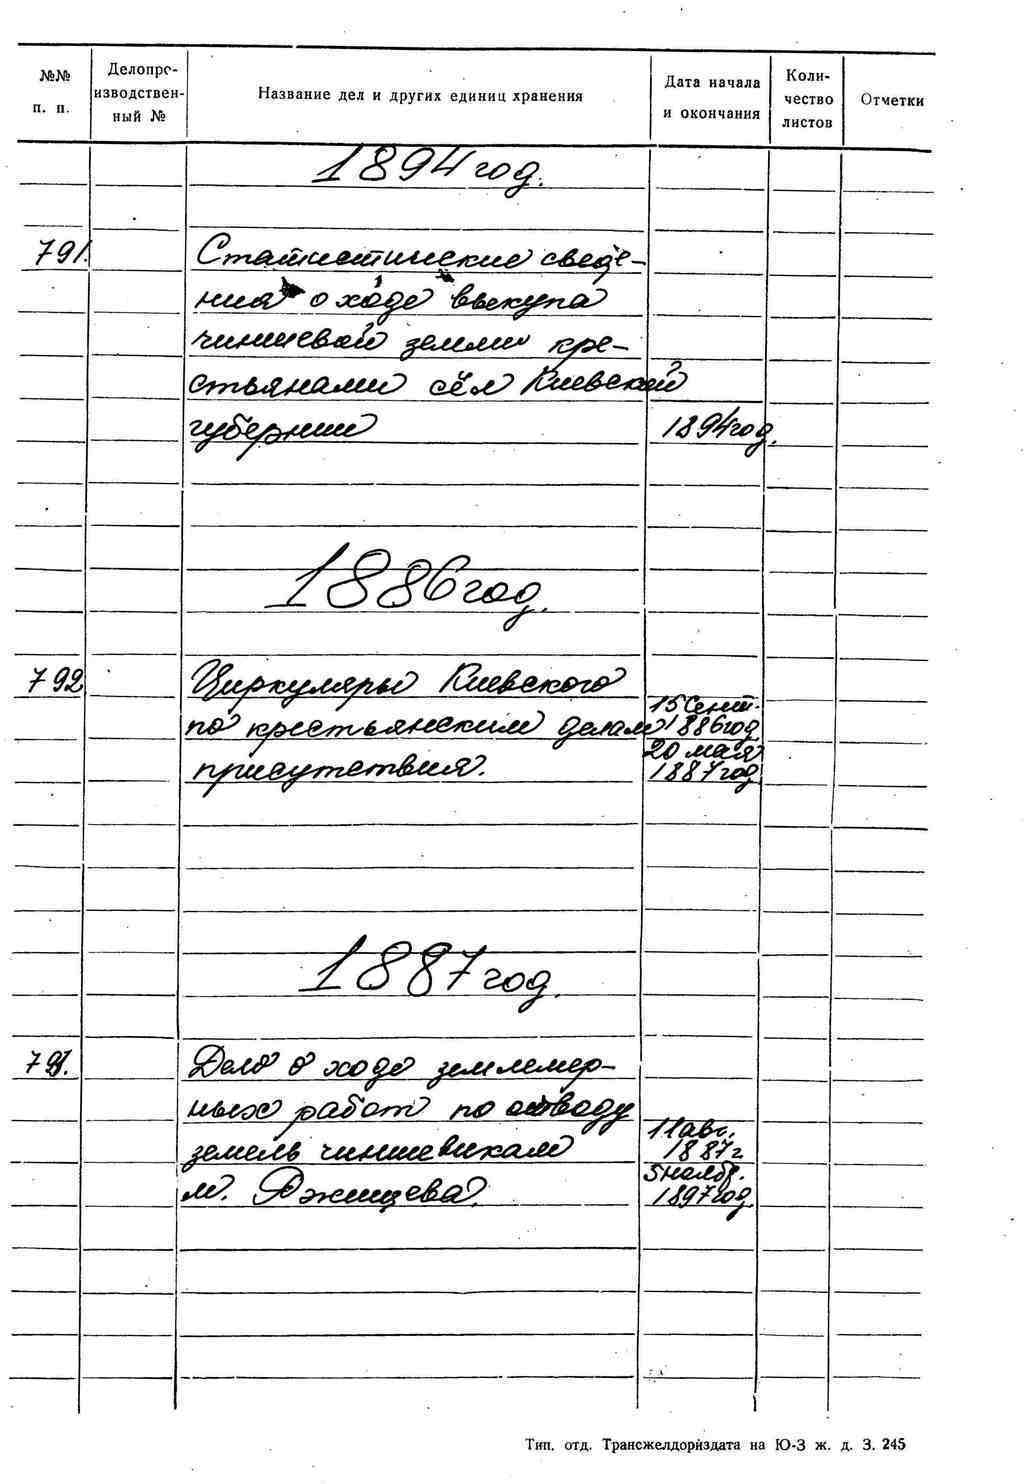 №№ п. п.
Делопро-
изводствен-
ный №
Название дел и других единиц хранения
Дата начала
и окончания
Коли-
чество
листов
Отметки
1894 год.
791.
Статистические сведе-
ния о ходе выкупа
чиншевой земли кре-
стьянами сёл Киевской
губернии
1894 год.
1886 год.
792
Циркуляры Киевского
по крестьянским делам
присутствия.
15 Сент.
1886 год
20 мая
1887 год
1887 год.
Дело о ходе землемер-
ных работ по отводу
земель чиншевикам
м. Ржищева.
11 авг.
1887 г.
5 ноябр.
1897 год.
Тип. отд. Трансжелдориздата на Ю-З ж. д. З. 245